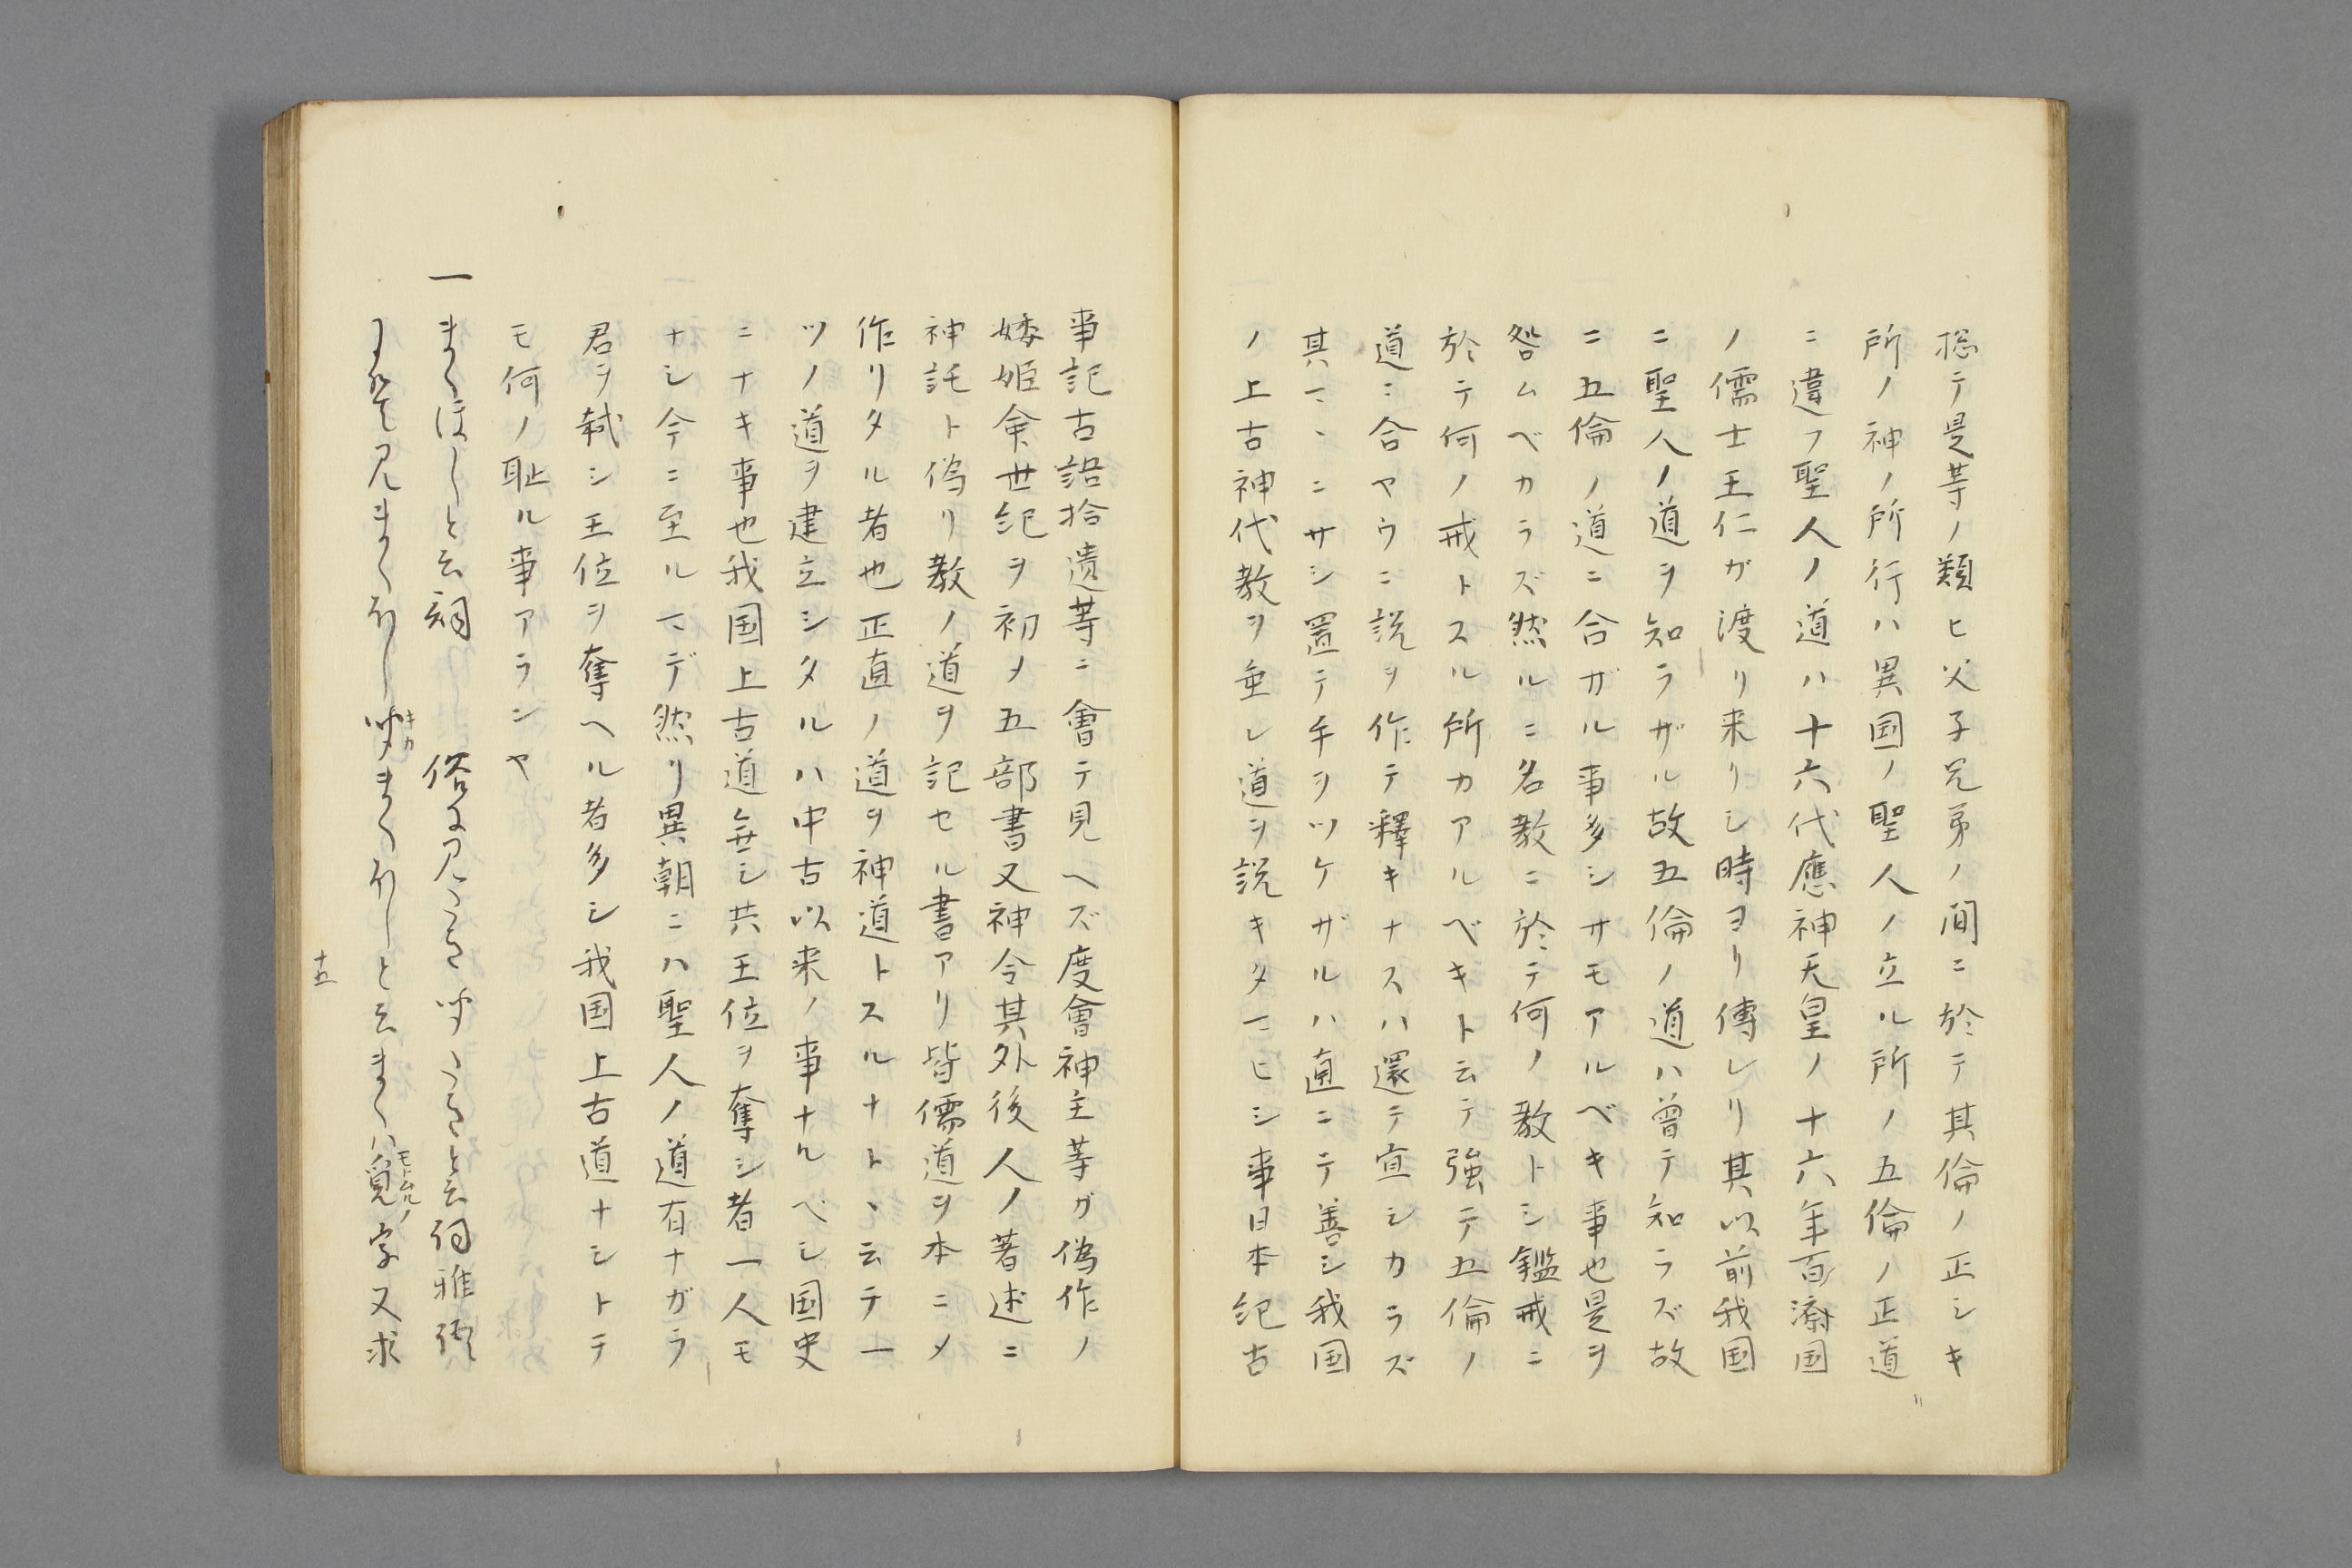 捴テ是等ノ類ヒ父子兄弟ノ間ニ於テ其倫ノ正シキ
所ノ神ノ所行ハ異国ノ聖人ノ立ル所ノ五倫ノ正道
ニ違フ聖人ノ道ハ十六代應神天皇ノ十六年百濟国
ノ儒士王仁ガ渡リ来リシ時ヨリ傳レリ其以前我国
ニ聖人ノ道ヲ知ラザル故五倫ノ道ハ曽テ知ラズ故
ニ五倫ノ道ニ合ガル事多シサモアルベキ事也是ヲ
咎ムベカラズ然ルニ名教ニ於テ何ノ教トシ鑑戒ニ
於テ何ノ戒トスル所カアルベキト云テ強テ五倫ノ
道ニ合ヤウニ説ヲ作テ釋キナスハ還テ宜シカラズ
其マヽニサシ置テ手ヲツケザルハ直ニテ善シ我国
ノ上古神代教ヲ垂レ道ヲ説キタマヒシ事日本紀古
事記古語拾遺等ニ會テ見ヘズ度會神主等ガ偽作ノ
倭姫世紀ヲ初メ五部書又神令其外後人ノ著述ニ
神託ト偽リ教ノ道ヲ記セル書アリ皆儒道ヲ本ニメ
作リタル者也正直ノ道ヲ神道トスルナトヽ云テ一
ツノ道ヲ建立シタルハ中古以来ノ事ナルベシ国史
ニナキ事也我国上古道無シ共王位ヲ奪シ者一人モ
ナシ今ニ至ルマデ然リ異朝ニハ聖人ノ道有ナガラ
君ヲ弑シ王位ヲ奪ヘル者多シ我国上古道ナシトテ
モ何ノ耻ル事アランヤ
一 まくほしと云詞 俗に見たき聞たきと云詞雅語
にて見まくほし聞キカまくほしと云まくハ覓モトムルノ字又求
十五